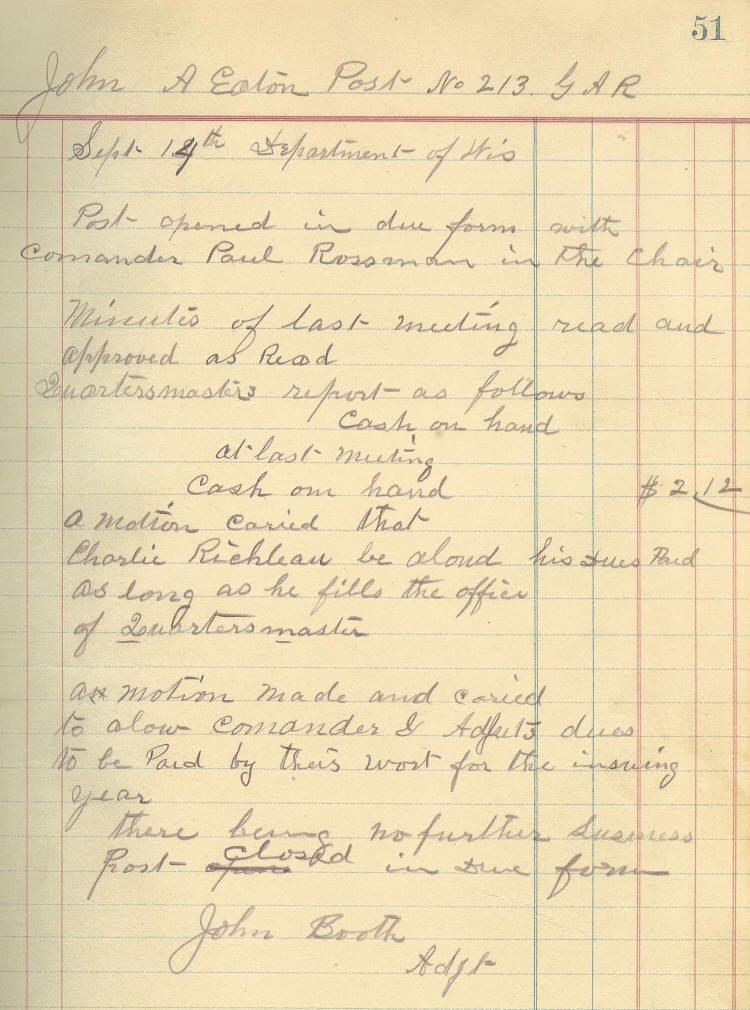 51
John A Eaton Post No 213. G A R
Sept 14th Department of Wis
Post opened in due form with
Comander Paul Rossman in the Chair
Minutes of last meeting read and
approved as Read
Quartersmasters report as follows
Cash on hand
at last meeting
Cash on hand $ 2.12
a motion caried that
Charlie Richleau be aloud his dues Paid
as long as he fills the office
of Quartersmaster
a motion made and caried
to alow Comander & Adjuts dues
to be Paid by theis for the insuing
year
there being no further business
Post closed in due form
John Booth
Adjt